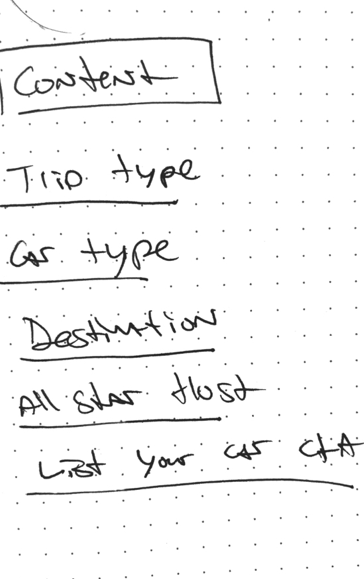 Content
Trip type
Car type
Destination
All Star Host
List your car CTA